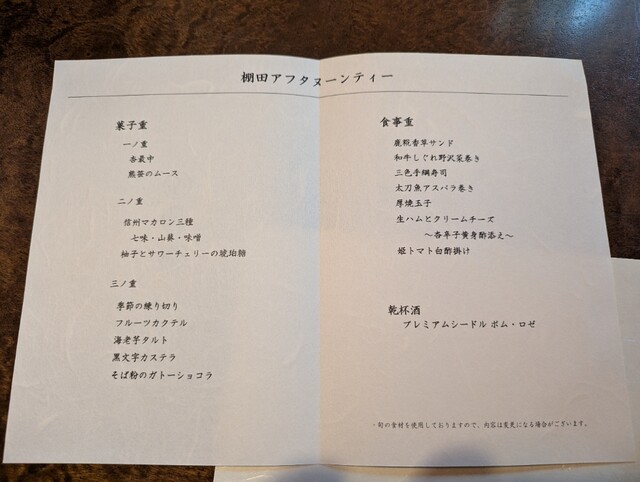 棚田アフタヌーンティー
菓子重
一ノ重
杏最中
熊笹のムース
二ノ重
信州マカロン三種
七味・山葵・味噌
柚子とサワーチェリーの琥珀糖
三ノ重
季節の練り切り
フルーツカクテル
海老芋タルト
黒文字カステラ
そば粉のガトーショコラ
食事重
鹿糀香草サンド
和牛しぐれ野沢菜巻き
三色手綱寿司
太刀魚アスパラ巻き
厚焼玉子
生ハムとクリームチーズ
〜杏辛子黄身酢添え〜
姫トマト白酢掛け
乾杯酒
プレミアムシードル ポム・ロゼ
・旬の食材を使用しておりますので、内容は変更になる場合がございます。